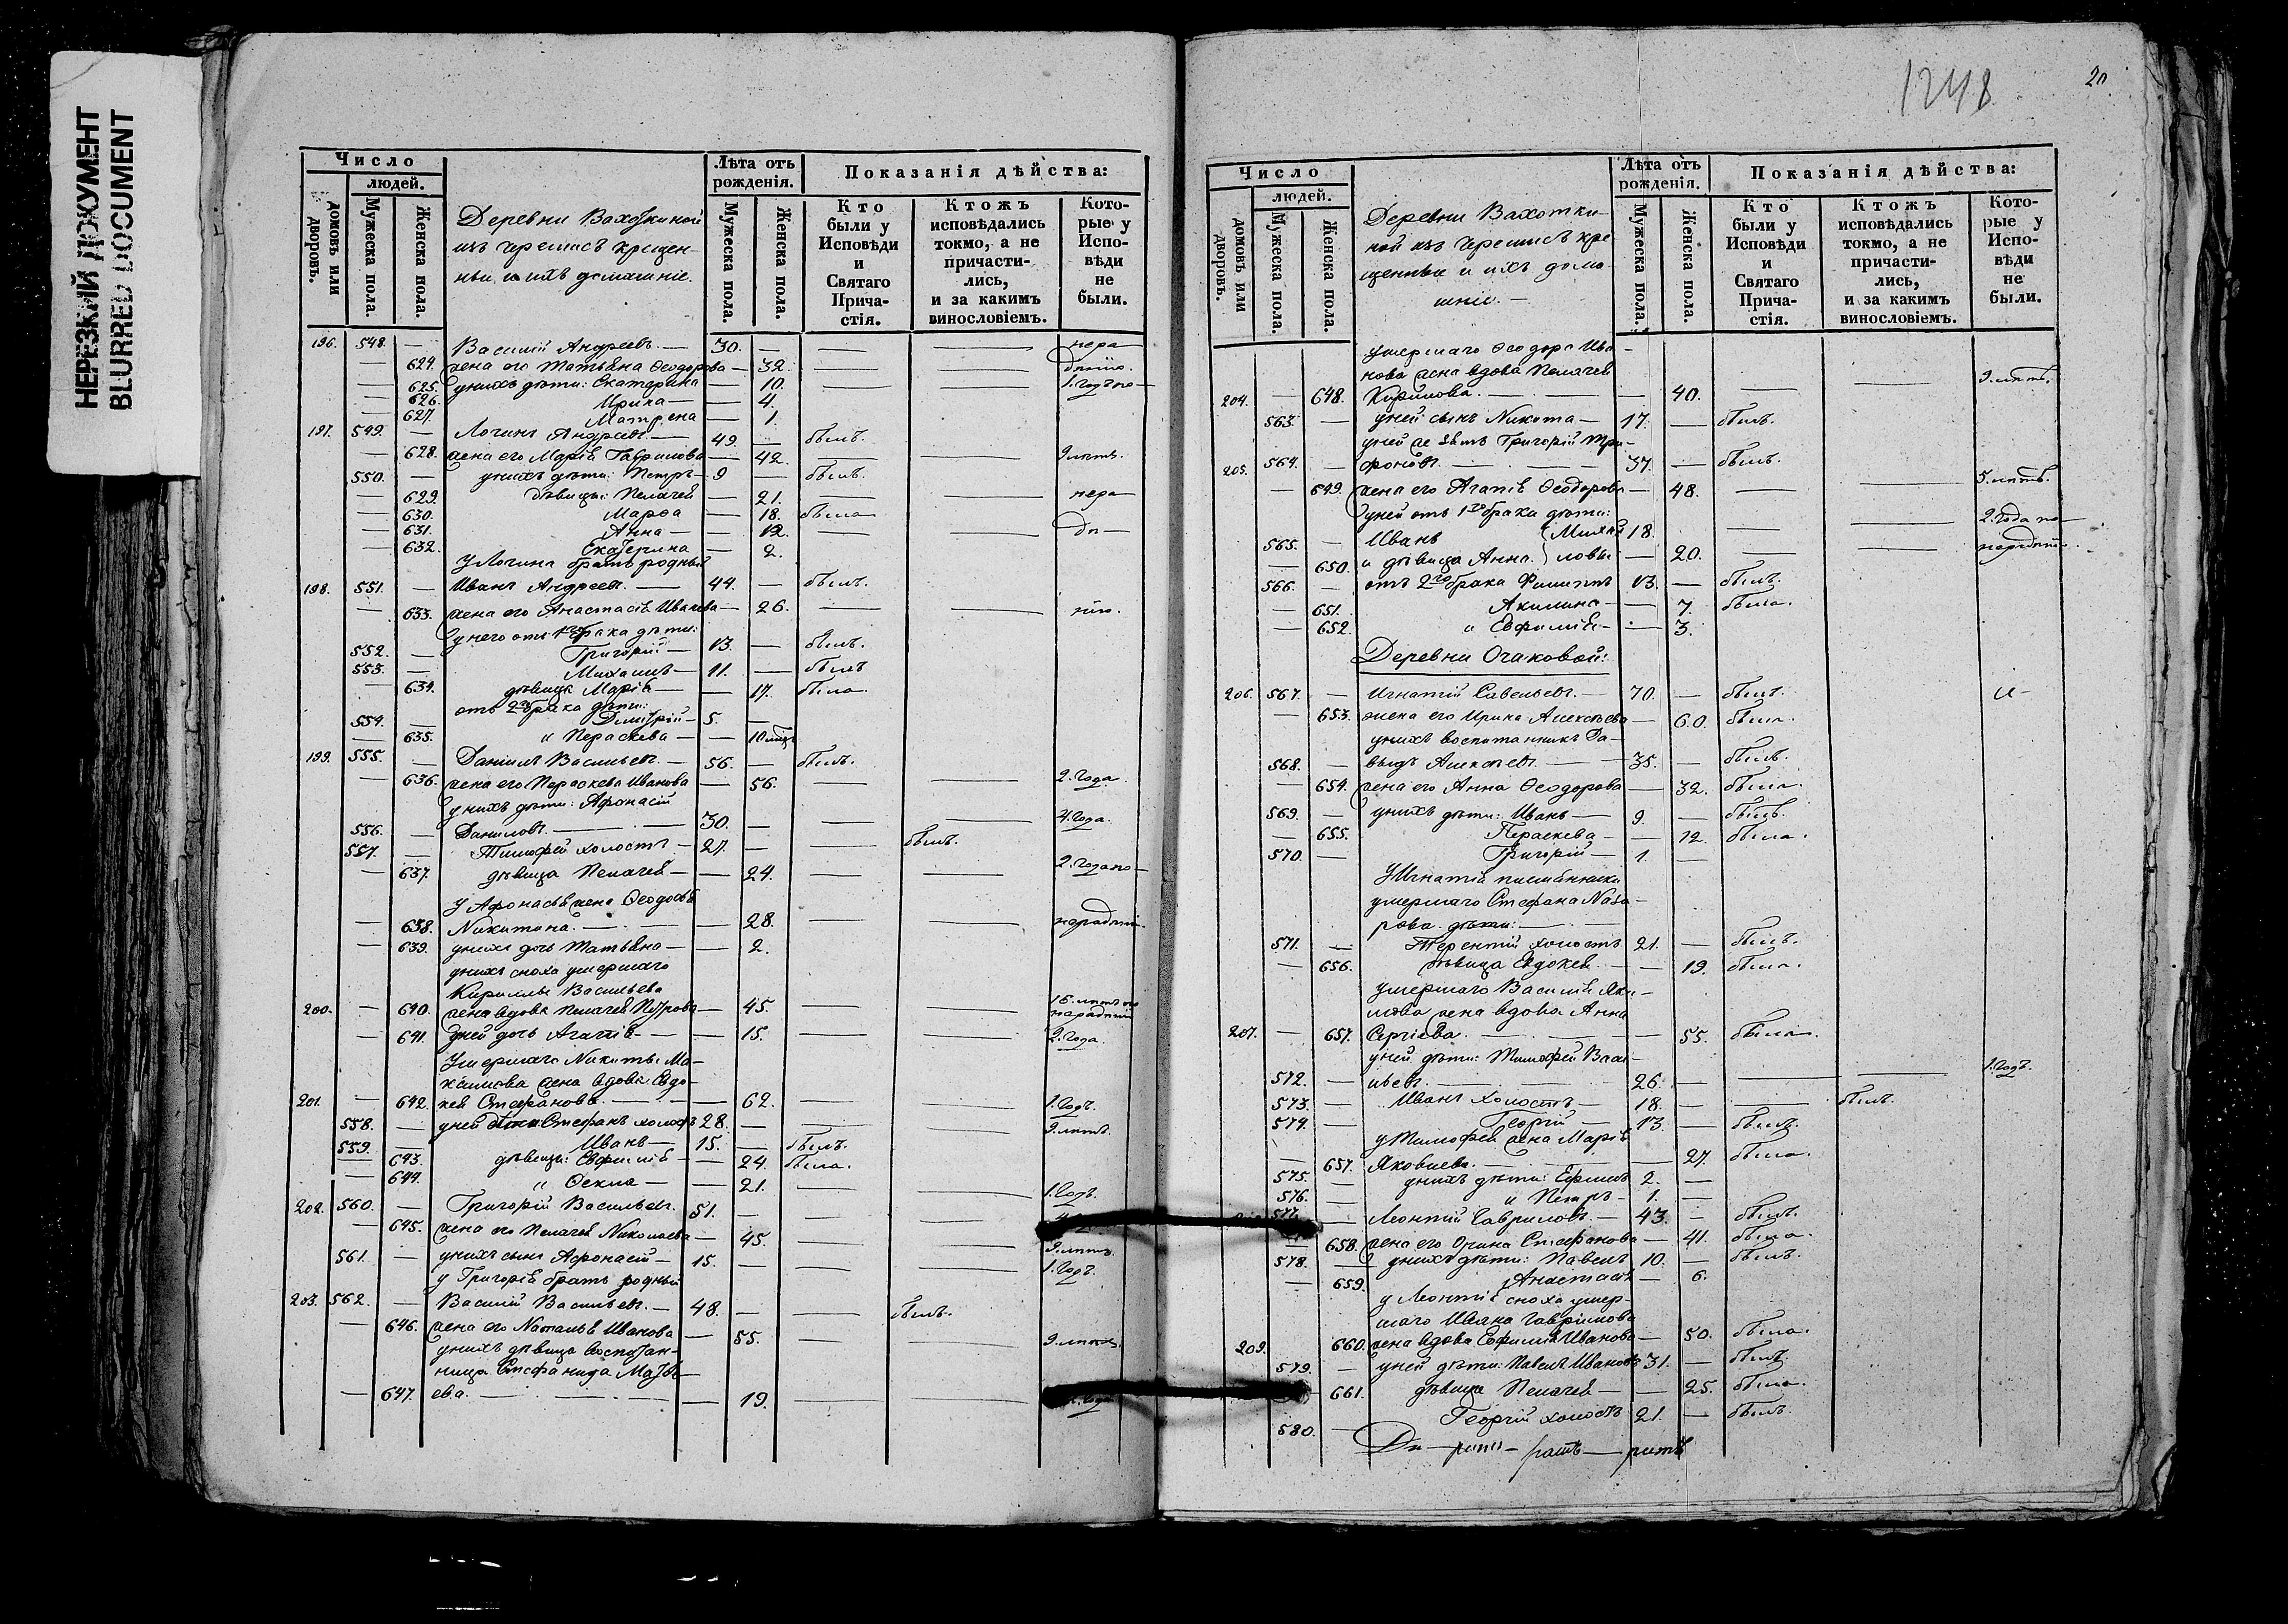 НЕРЕЗКИЙ ДОКУМЕНТ
BLURRED DOCUMENT
Число
людей.
домовъ или дворовъ.
Мужеска пола.
Женска пола.
Деревни Вахоткиной
изъ черемисъ крещен-
ныи, и ихъ домашніе.
Лѣта отъ рожденія.
Мужеска пола.
Женска пола.
Показанія дѣйства:
Кто были у Исповѣди и Святаго Прича-стія.
Ктожъ исповѣдались токмо, а не причасти-лись, и за какимъ винословіемъ.
Кото-рые у Испо-вѣди не были.
196. 548. — Василій Андреевъ. — 30. — нера
— 624. жена его Татьяна Ѳеодорова — 32.
— 625. у нихъ дѣти: Екатерина — 10. 1. годъ по
— 626. Ирина — 4.
— 627. Матрена — 1.
197. 549. — Логинъ Андреевъ. — 49. — былъ.
— 628. жена его Марія Гаврилова — 42. 9 лѣтъ.
550. — у нихъ дѣти: Петръ — 9 — былъ.
— 629. дѣвицы: Пелагея — 21. — нера
— 630. Марѳа — 18. была
— 631. Анна — 12. — дн
— 632. Екатерина — 2.
У Логина братъ родный
198. 551. — Иванъ Андреевъ. — 44. — былъ.
— 633. жена его Анастасія Иванова — 26. — нію.
у него отъ 1го брака дѣти:
552. — Григорій — 13. — былъ.
553. — Михаилъ — 11. — былъ
— 634. дѣвица Марія — 17. была.
отъ 2го брака дѣти:
554. — Димитрій — 5. —
— 635. и Параскева — 10 мцъ
199. 555. — Даніилъ Васильевъ. — 56. — былъ.
— 636. жена его Параскева Иванова — 56. — 2. года.
у нихъ дѣти: Афонасій
556. — Даниловъ. — 30. — 4. года.
557. — Тимофей холостъ — 27. — былъ.
— 637. дѣвица Пелагея — 24. — 2. года по
У Афонасья жена Ѳеодосья
— 638. Никитина. — 28. — нерадѣнію.
— 639. у нихъ дочь Татьяна — 2.
у нихъ сноха умершаго
Кириллы Васильева
200. — 640. жена вдова Пелагея Петрова — 45. — 16. лѣтъ по нерадѣнію
— 641. у ней дочь Агапія — 15. — 2. года.
Умершаго Никиты Ма-
ксимова жена вдова Евдо-
201. — 642. кея Стефанова. — 62. — 1. годъ.
558. — у ней дѣти: Стефанъ холостъ 28. — 9. лѣтъ.
559. — Иванъ — 15. — былъ.
— 643. дѣвицы: Евфимія — 24. была.
— 644. и Ѳекла — 21. — 1. годъ.
202. 560. — Григорій Васильевъ. 51. —
— 645. жена его Пелагея Николаева — 45. — 9. лѣтъ.
561. — у нихъ сынъ Афонасій — 15. — 1. годъ.
у Григорія братъ родный
203. 562. — Василій Васильевъ. — 48. — былъ.
— 646. жена его Наталья Иванова — 55. — 9. лѣтъ.
у нихъ дѣвица воспитан-
ница Стефанида Матве-
— 647. ева. — 19.
1248
20
Число
людей.
домовъ или дворовъ.
Мужеска пола.
Женска пола.
Деревни Вахотки-
ной изъ черемисъ кре
щенные и ихъ дома-
шніе. —
Лѣта отъ рожденія.
Мужеска пола.
Женска пола.
Показанія дѣйства:
Кто были у Исповѣди и Святаго Прича-стія.
Ктожъ исповѣдались токмо, а не причасти-лись, и за какимъ винословіемъ.
Кото-рые у Испо-вѣди не были.
умершаго Ѳеодора Ива-
нова жена вдова Пелагея
204. — 648. Кирилова. — 40. — 9. лѣтъ.
563. — у ней: сынъ Никита — 17. — былъ.
у ней же зять Григорій Три-
205. 564. — фоновъ. — 37. — былъ.
— 649. жена его Агапія Ѳеодорова — 48. — 5. лѣтъ.
у ней отъ 1го брака дѣти:
565. — Иванъ } Михай 18. — 2. года по
— 650. и дѣвица Анна. } ловы — 20. — нерадѣнію.
566. — отъ 2го брака Филиппъ 13. — былъ.
— 651. Акилина — 7. была.
— 652. и Евфимія — 3.
Деревни Очаковой:
206. 567. — Игнатій Савельевъ. — 70. — былъ.
— 653. жена его Ирина Алексѣева — 60. была.
у нихъ воспитанникъ Да-
568. — выдъ Алексѣевъ. — 35. — былъ.
— 654. жена его Анна Ѳеодорова — 32. была.
569. — у нихъ дѣти: Иванъ — 9 — былъ.
— 655. Параскева — 12. была.
570. — Григорій — 1. —
У Игнатія племянники
умершаго Стефана Наза-
рова дѣти: —
571. — Терентій холостъ 21. — былъ.
— 656. дѣвица Евдокея. — 19. была.
умершаго Василія Яки-
мова жена вдова Анна
207. — 657. Сергіева. — 55. была.
у ней дѣти: Тимофей Васи-
572. — льевъ. — 26. — 1. годъ.
573. — Иванъ холостъ — 18. — былъ.
574. — Георгій — 13. — былъ.
у Тимофея жена Марія
— 657. Яковлева. — 27. была.
575. — у нихъ дѣти: Ефимъ 2. —
576. — и Петръ — 1. —
— Леонтій Гавриловъ. — 43. — былъ.
— 658. жена его Орина Стефанова — 41. была.
578. — у нихъ дѣти: Павелъ 10. — былъ.
— 659. Анастасія — 6.
у Леонтія сноха умер-
шаго Ивана Гаврилова
209. 660. жена вдова Евфимія Иванова — 50. была.
579. — у ней дѣти: Павелъ Ивановъ 31. — былъ.
661. дѣвица Пелагея — 25. была.
580. — Георгій холостъ 21. — былъ.